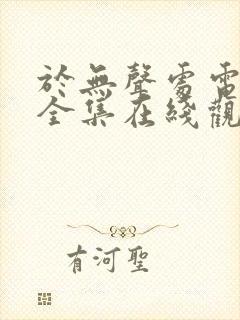 於無聲處電
全集在綫觀
有河聖